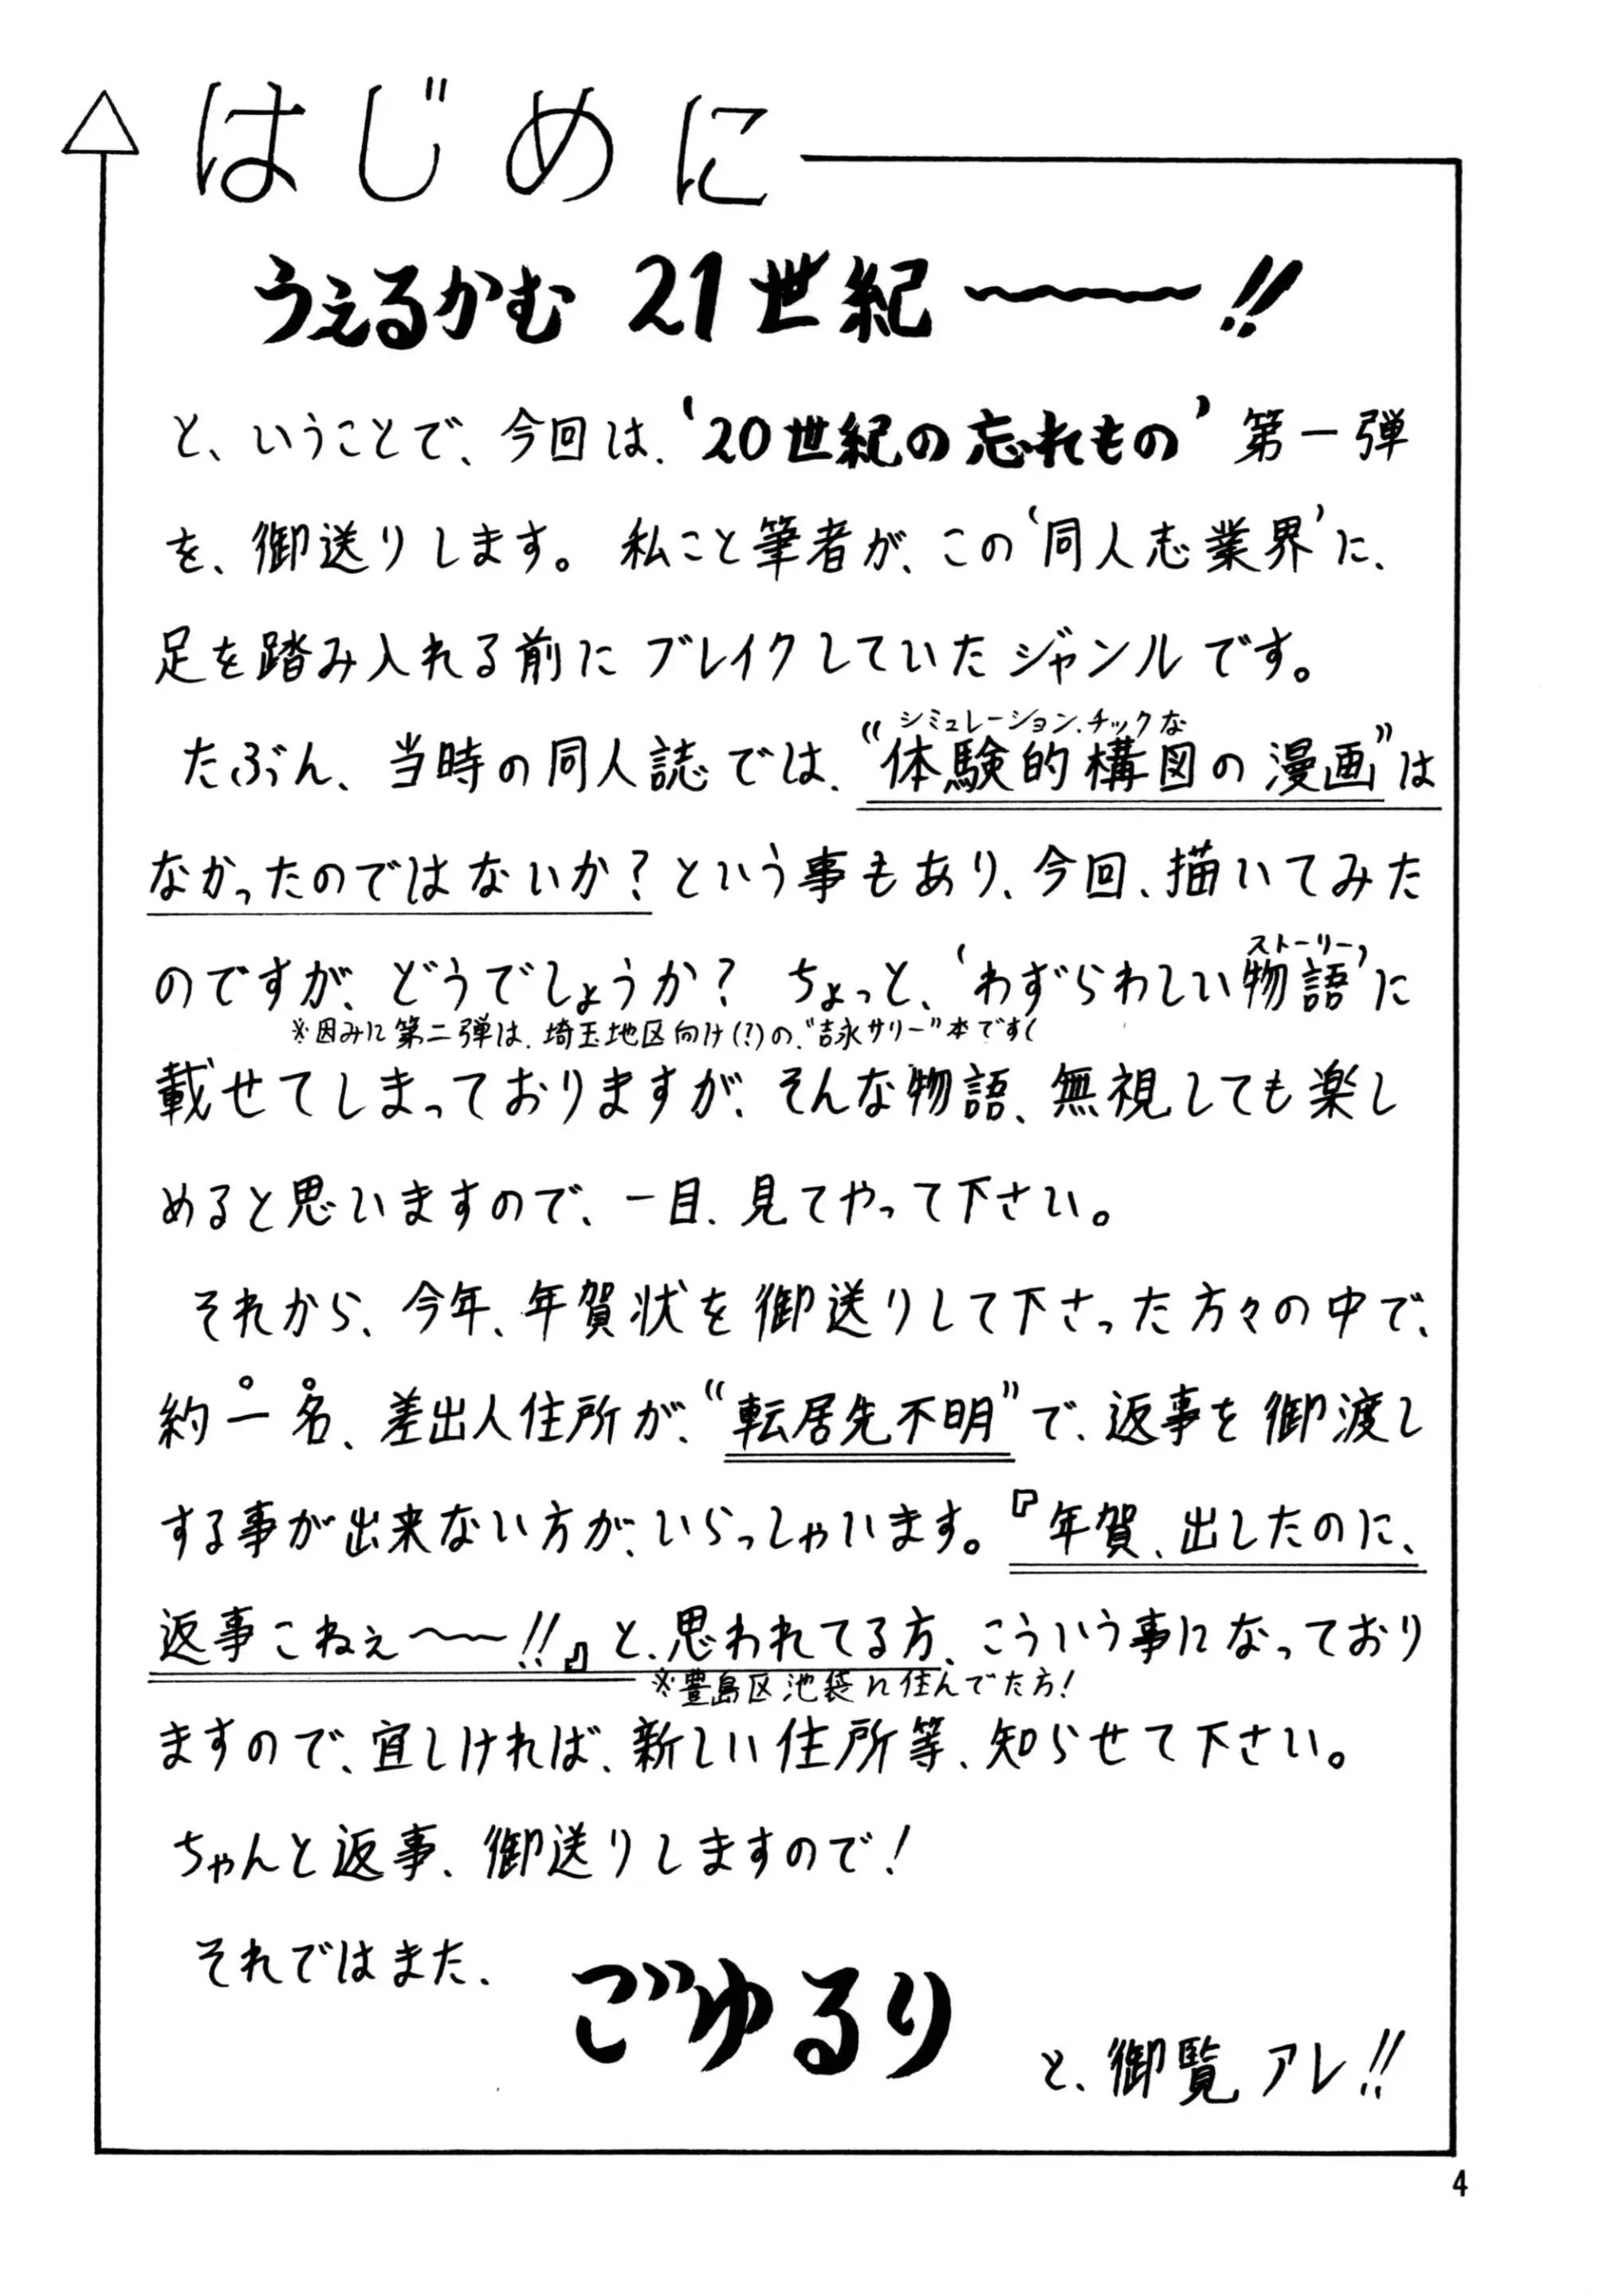 はじめに
うぇるかむ 21世紀〜〜!!
と、いうことで、今回は、‘20世紀の忘れもの’第一弾
を、御送りします。私こと筆者が、この‘同人志業界’に、
足を踏み入れる前にブレイクしていたジャンルです。
シミュレーション、チックな
たぶん、当時の同人誌では、“体験的構図の漫画”は
なかったのではないか?という事もあり、今回、描いてみた
ストーリー
のですが、どうでしょうか? ちょっと、‘わずらわしい物語’に
※因みに第二弾は、埼玉地区向け(?)の、“吉永サリー”本です(
載せてしまっておりますが、そんな物語、無視しても楽し
めると思いますので、一目、見てやって下さい。
それから、今年、年賀状を御送りして下さった方々の中で、
約一名、差出人住所が、“転居先不明”で、返事を御渡し
する事が出来ない方が、いらっしゃいます。『年賀、出したのに、
返事こねぇ〜〜!!』と、思われてる方、こういう事になっており
※豊島区池袋に住んでた方!
ますので、宜しければ、新しい住所等、知らせて下さい。
ちゃんと返事、御送りしますので!
それではまた、
ごゆるり
と、御覧アレ!!
4